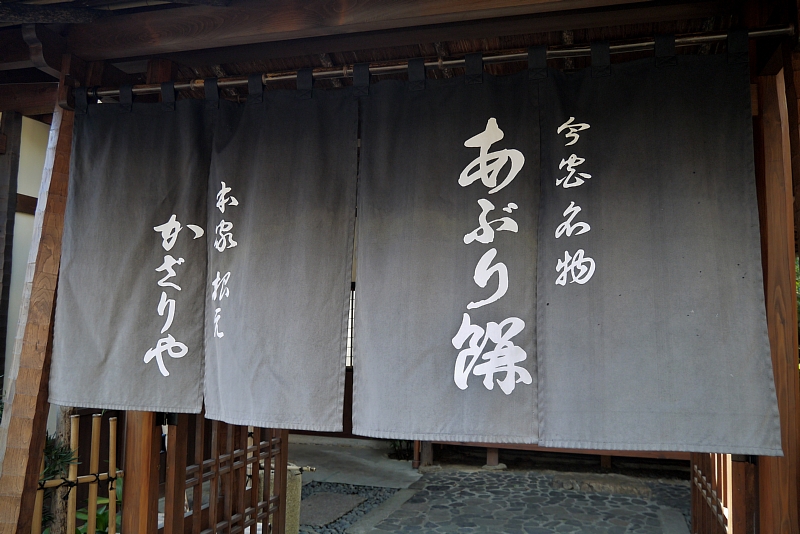 今宮名物
あぶり餅
本家 根元
かざりや